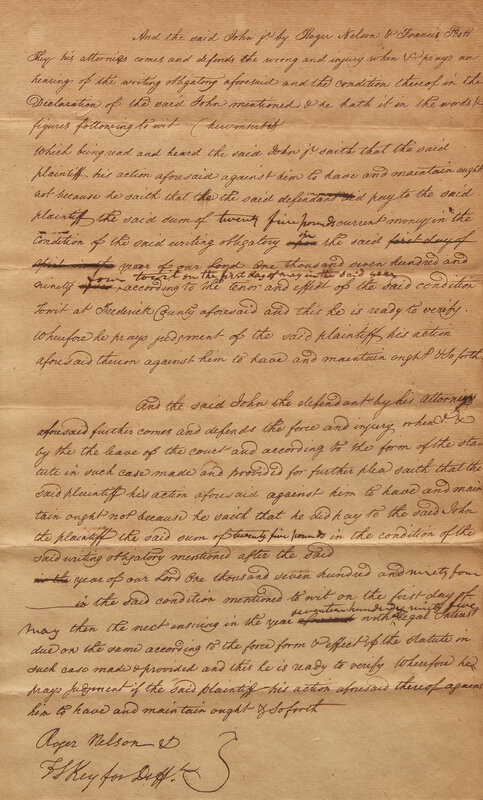 And the said John Jr by Roger Nelson & Francis S
Key his attornies comes and defends the wrong and injury when & prays an
hearing of the writing obligatory aforesaid and the condition thereof in the
Declaration of the said John mentioned & he hath it in the words &
figures following to wit (here insert it
Which being read and heard the said John Jr saith that the said
plaintiff his action aforesaid against him to have and maintain ought
not because he saith that he the said defendant did pay to the said
plaintiff the said sum of twenty five pounds current money in the
condition of the said writing obligatory upon in the said first day of
year of our Lord One thousand seven hundred and
four to wit on the first day of may in the said year
ninety according to the tenor and effect of the said condition
To wit at Frederick County aforesaid and this he is ready to verify.
Wherefore he prays judgment if the said plaintiff his action
aforesaid thereon against him to have and maintain ought & so forth
And the said John the defendant by his Attornies
aforesaid further comes and defends the force and injury when & &
by the the leave of the court and according to the form of the sta
tute in such case made and provided for further plea saith that the
said plaintiff his action aforesaid against him to have and main
tain ought not because he saith that he did pay to the said John
the plaintiff the said sum of twenty five pounds in the condition of the
said writing obligatory mentioned after the said
in the year of our Lord One thousand seven hundred and ninety four
in the said condition mentioned to wit on the first day of
seventeen hundred & ninety five
may then the next ensuing in the year aforesaid with legal Interest
due on the same according to the force form & effect of the statute in
such case made & provided and this he is ready to verify Wherefore he
prays judgment if the said plaintiff his action aforesaid thereof against
him to have and maintain ought & so forth
Roger Nelson &
F S Key for Defft